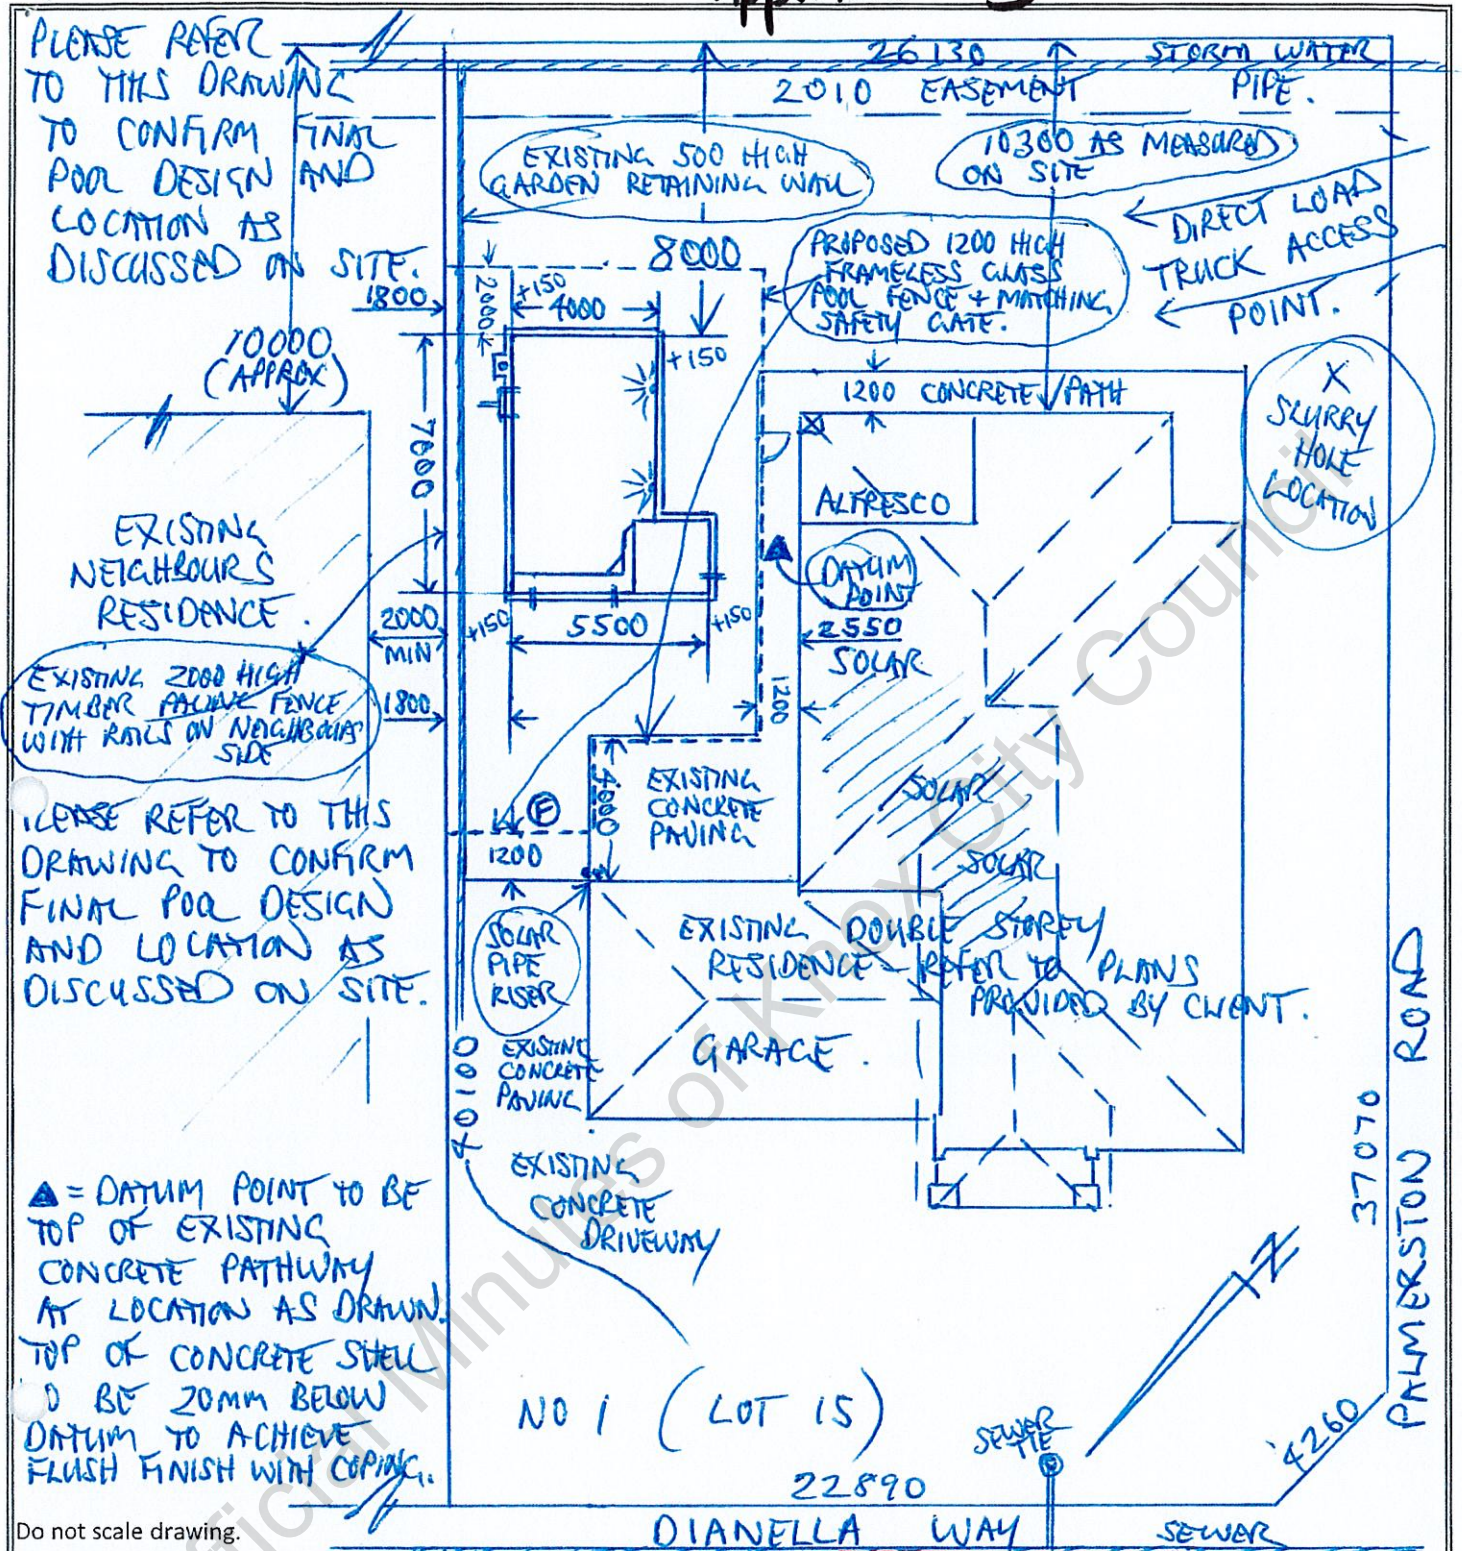 PLEASE REFER
TO THIS DRAWING
TO CONFIRM FINAL
POOL DESIGN AND
LOCATION AS
DISCUSSED ON SITE.
26130
STORM WATER
PIPE.
2010 EASEMENT
EXISTING 500 HIGH
GARDEN RETAINING WALL
10300 AS MEASURED
ON SITE
DIRECT LOAD
TRUCK ACCESS
POINT.
8000
PROPOSED 1200 HIGH
FRAMELESS GLASS
POOL FENCE + MATCHING
SAFETY GATE.
1800
2000
+150
4000
+150
10000
(APPROX)
7000
1200 CONCRETE PATH
X
SLURRY
HOLE
LOCATION
ALFRESCO
EXISTING
NEIGHBOURS
RESIDENCE.
DATUM
POINT
2000
MIN
+150
5500
+150
2550
SOLAR
EXISTING 2000 HIGH
TIMBER PALING FENCE
WITH RAILS ON NEIGHBOURS
SIDE
1800
1200
4000
EXISTING
CONCRETE
PAVING
SOLAR
SOLAR
F
1200
PLEASE REFER TO THIS
DRAWING TO CONFIRM
FINAL POOL DESIGN
AND LOCATION AS
DISCUSSED ON SITE.
SOLAR
PIPE
RISER
EXISTING DOUBLE STOREY
RESIDENCE - REFER TO PLANS
PROVIDED BY CLIENT.
GARAGE.
EXISTING
CONCRETE
PAVING
40100
EXISTING
CONCRETE
DRIVEWAY
37070
PALMERSTON ROAD
▲ = DATUM POINT TO BE
TOP OF EXISTING
CONCRETE PATHWAY
AT LOCATION AS DRAWN.
TOP OF CONCRETE SHELL
TO BE 20MM BELOW
DATUM TO ACHIEVE
FLUSH FINISH WITH COPING.
NO 1 (LOT 15)
SEWER
TIE
4260
22890
DIANELLA WAY
SEWER
Do not scale drawing.
Official Minutes of Knox City Council